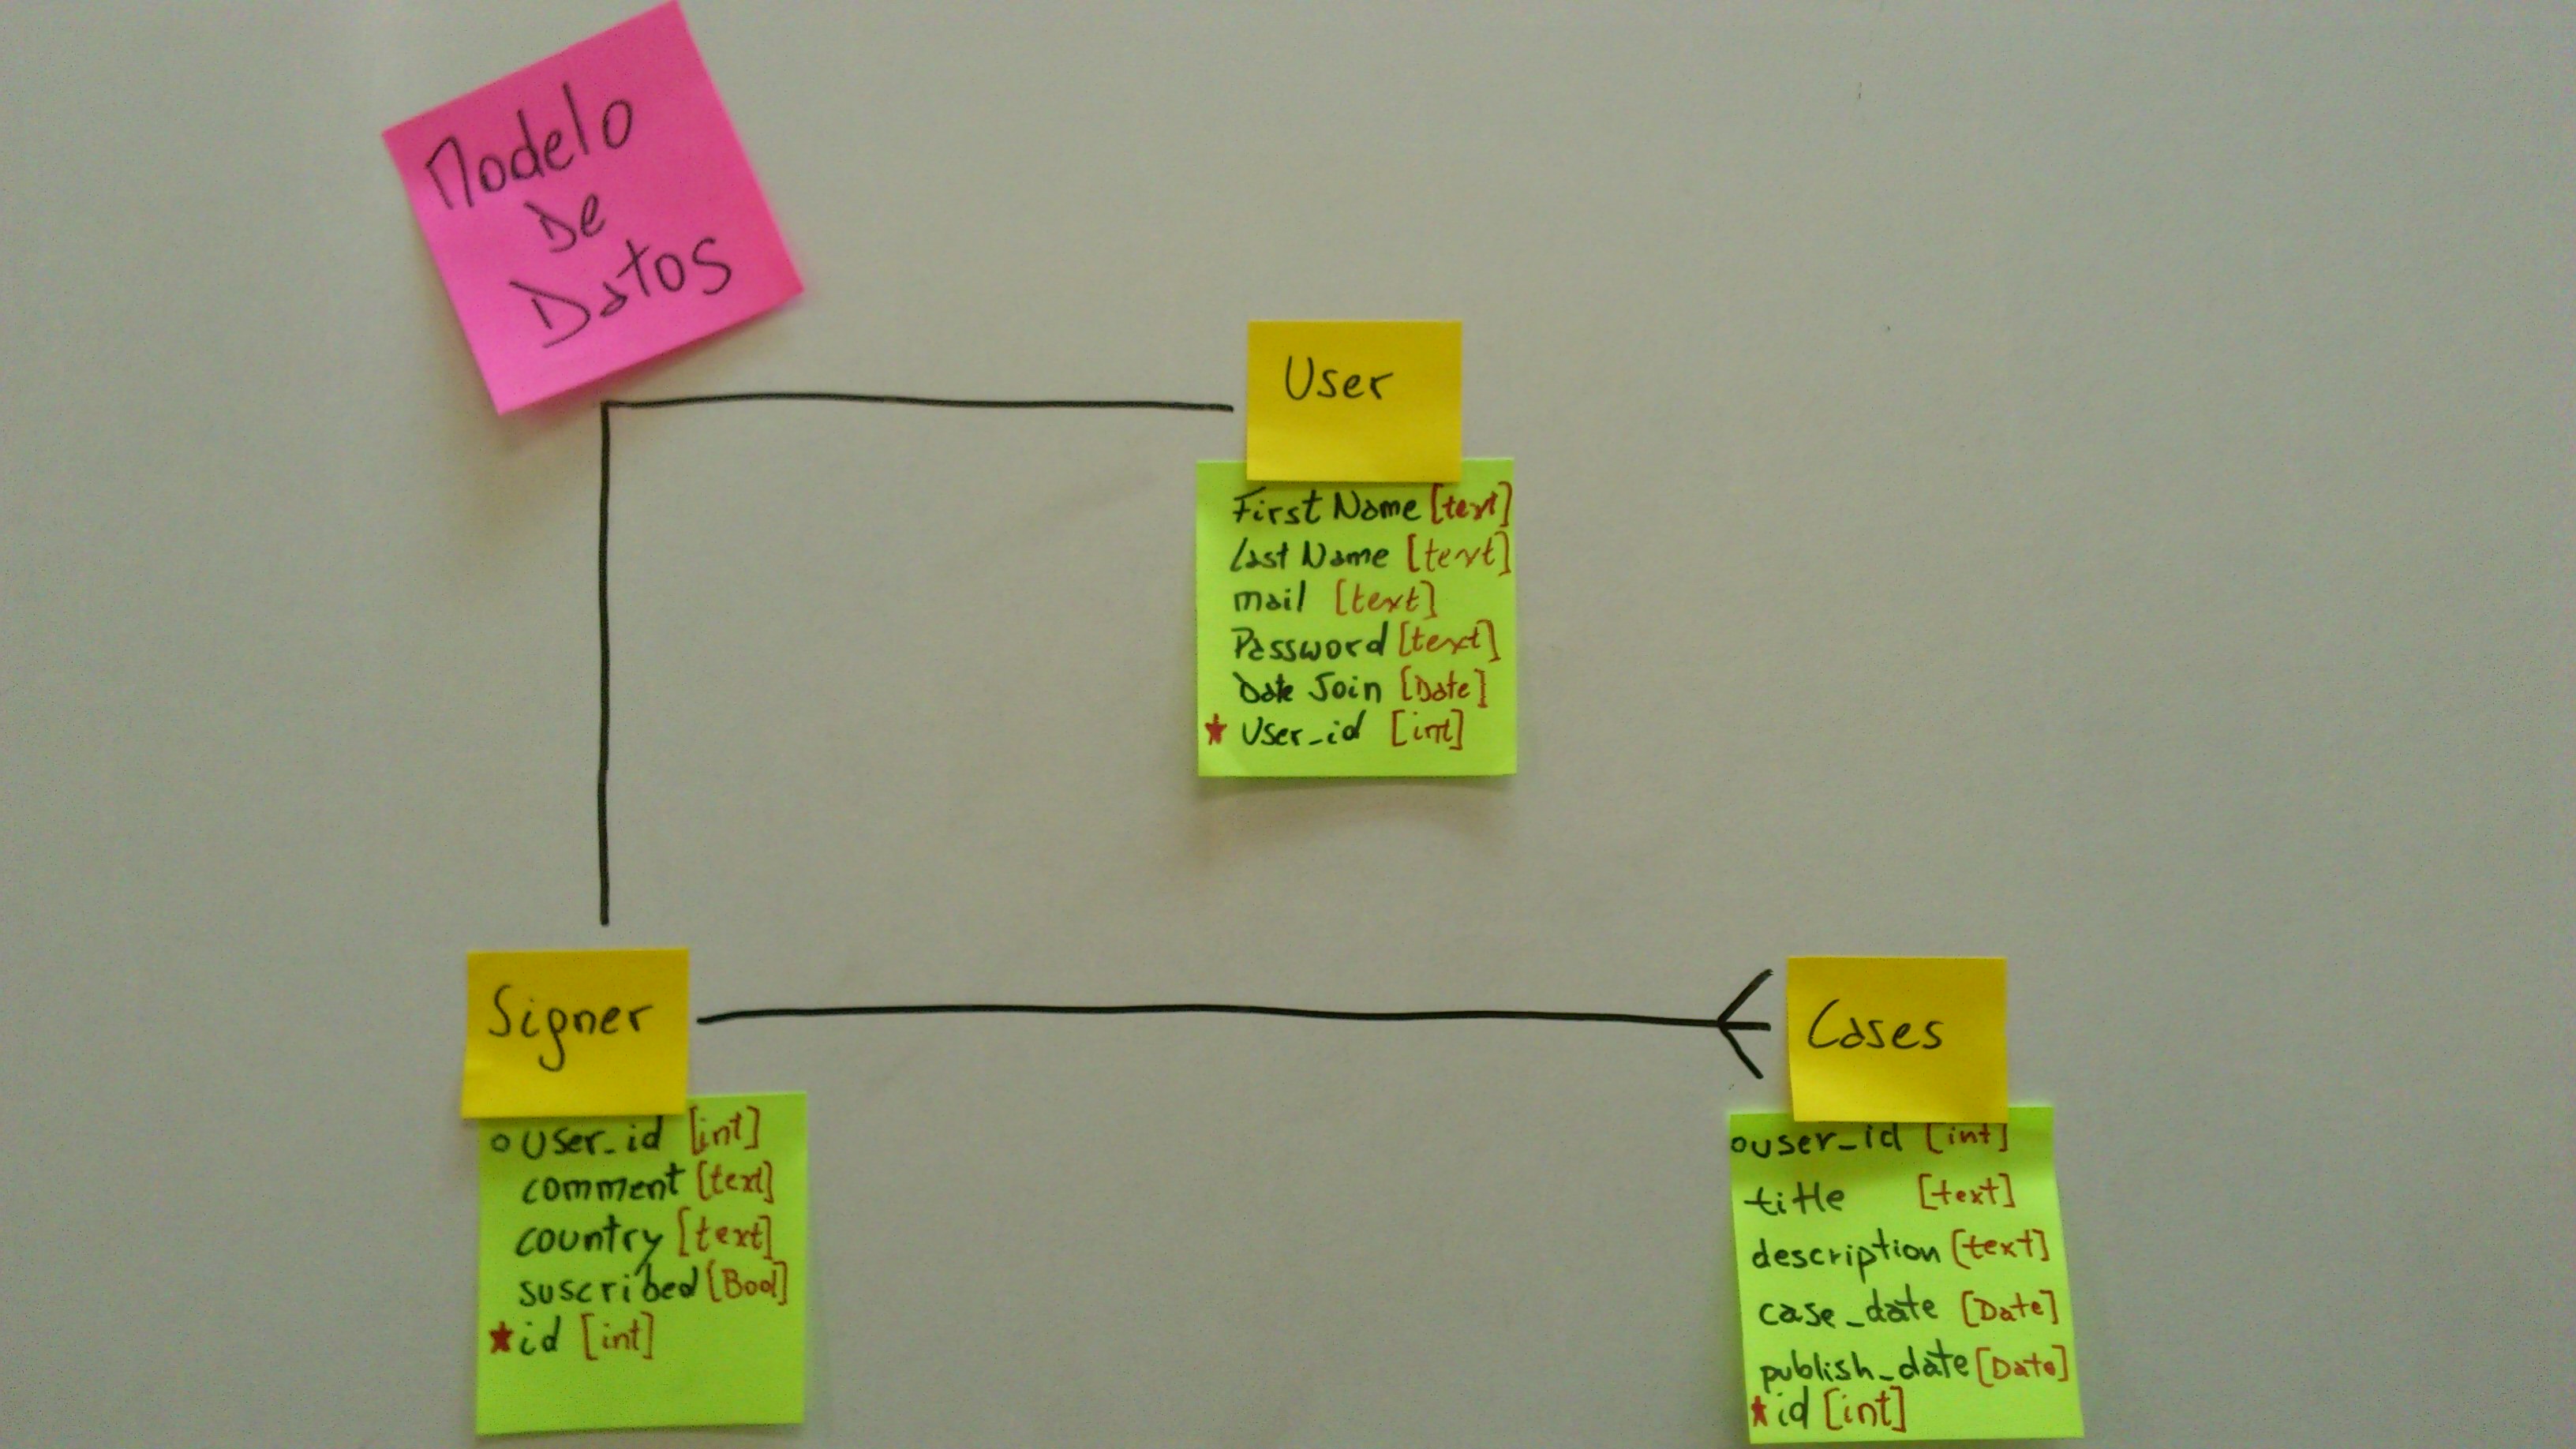 Modelo
De
Datos
User
First Name [text]
Last Name [text]
mail [text]
Password [text]
Date Join [Date]
★ User_id [int]
Signer
o user_id [int]
comment [text]
country [text]
suscribed [Bool]
★ id [int]
Cases
o user_id [int]
title [text]
description [text]
case_date [Date]
publish_date [Date]
★ id [int]